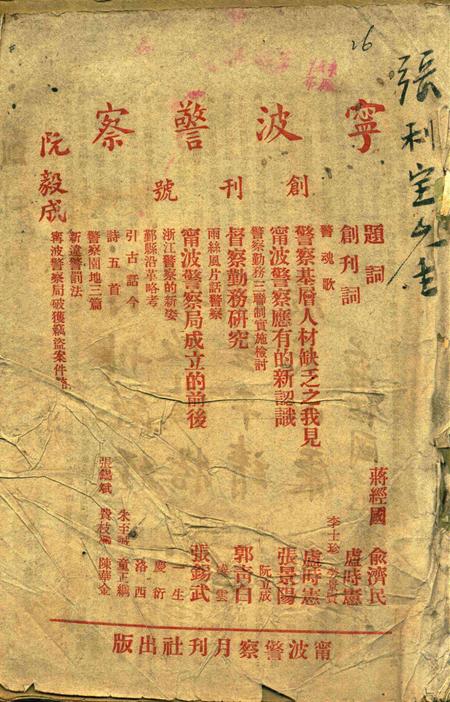 寧波警察
創刊號
阮毅成
張利宝先生
26
題詞 蔣經國 俞濟民
創刊詞 盧時憲
警魂歌 李士珍
警察基層人材缺乏之我見 盧時憲
甯波警察應有的新認識 張景陽
警察勤務三聯制實施檢討 阮立成
督察勤務研究 郭青白
雨絲風片話警察 凌雲
甯波警察局成立的前後 張錫武
浙江警察的新姿 一生
鄞縣沿革略考 慶衍
引古話今 洛西
詩五首 朱至誠 童正綱
警察園地三篇 張錫斌 費枝 陳華金
新違警罰法
甯波警察局破獲竊盜案件
甯波警察月刊社出版